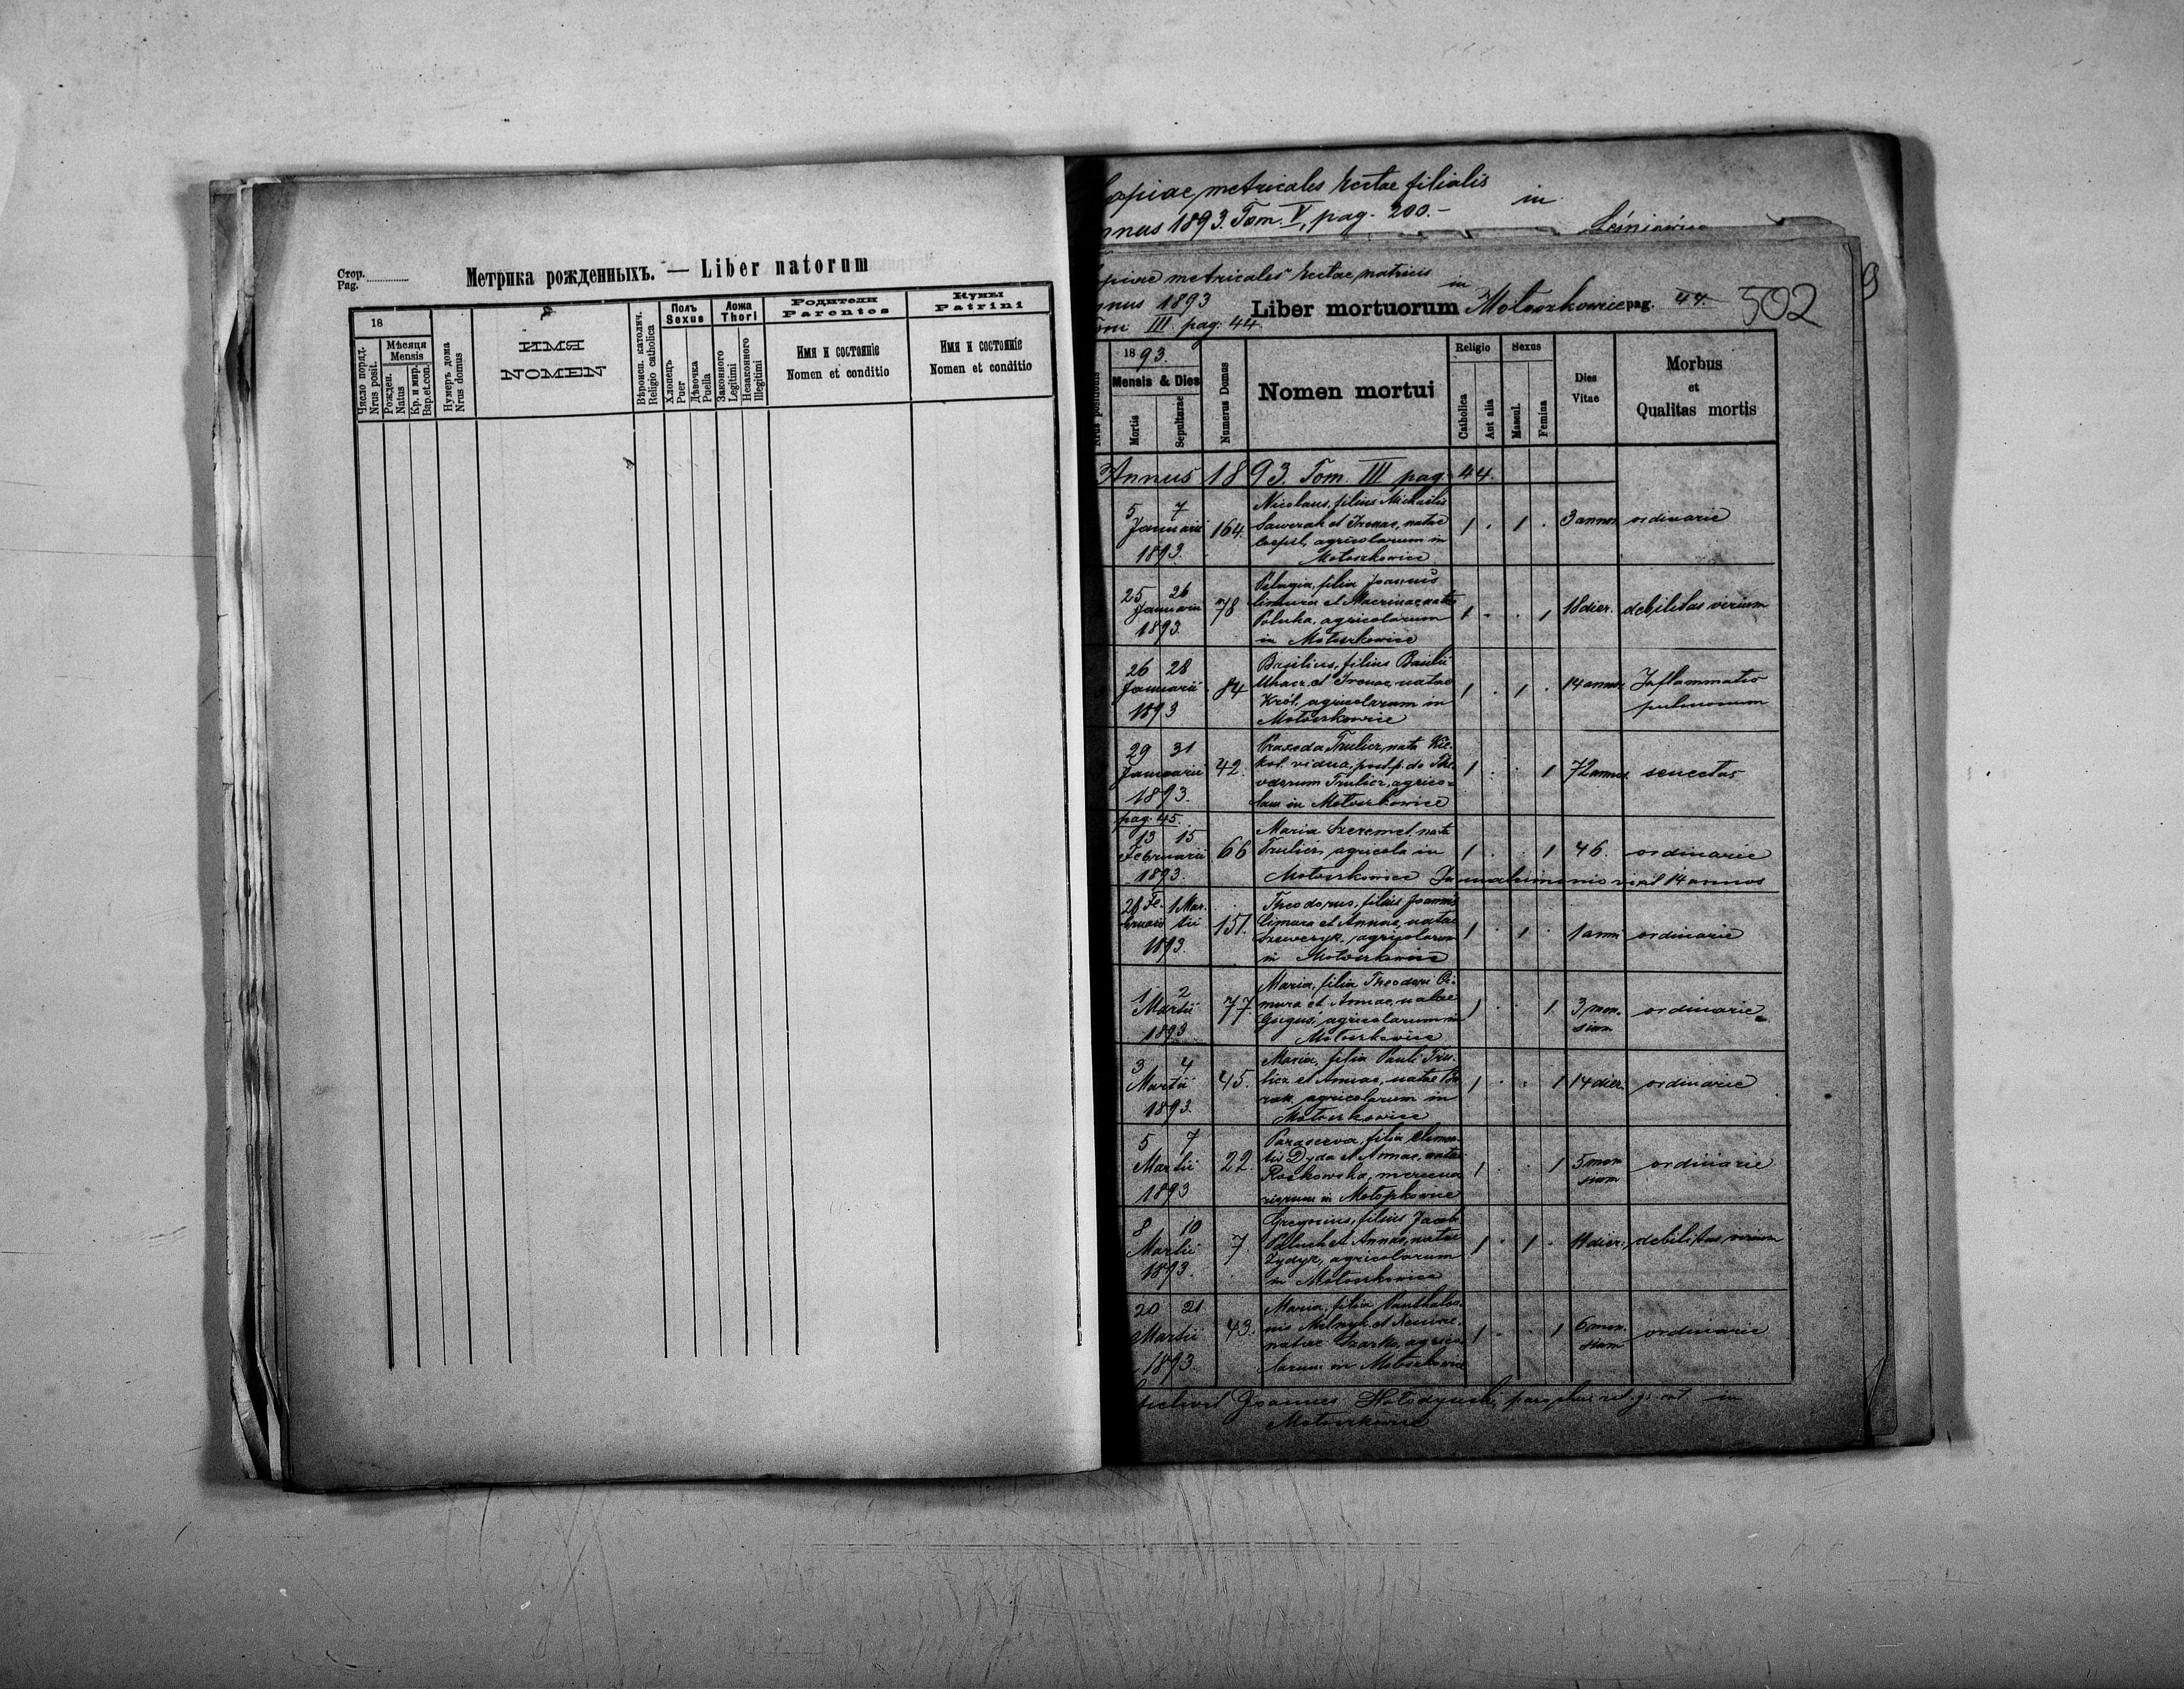 Стор.
Pag.
Метрика рожденныхъ. — Liber natorum
18
Число порядк.
Nrus posit.
Мѣсяця
Mensis
Рожден.
Natus
Кр. и мир.
Bap.et.con.
Нумеръ дома
Nrus domus
ИМЯ
NOMEN
Вѣроисп. католич.
Religio catholica
Полъ
Sexus
Хлопецъ
Puer
Дѣвочка
Puella
Ложа
Thori
Законного
Legitimi
Незаконного
Illegitimi
Родители
Parentes
Имя и состояніе
Nomen et conditio
Кумы
Patrini
Имя и состояніе
Nomen et conditio
Copiae metricales Ecclae filialis in
Annus 1893. Tom. V, pag. 200.-
metricales Ecclae matricis in
1893
Liber mortuorum Mołoszkowice pag. 44.
502
Tom III pag. 44.
1893.
Mensis & Dies
Mortis
Sepulturae
Numerus Domus
Nomen mortui
Religio
Catholica
Aut alia
Sexus
Mascul.
Femina
Dies
Vitae
Morbus
et
Qualitas mortis
Annus 1893. Tom. III pag. 44.
5 7
Januarii
1893.
164.
Nicolaus, filius Michaelis
et Irenae, natae
agricolarum in
Mołoszkowice
1 . 1 .
3 annor. ordinarie
25 26
Januarii
1893.
78
Pelagia, filia Joannis
Cimura et Macrinae natae
Poluha, agricolarum
in Mołoszkowice
1 . . 1
18 dier. debilitas virium
26 28
Januarii
1893
84
Basilius, filius Basilii
et Irenae, natae
Król, agricolarum in
Mołoszkowice
1 . 1 .
14 annor. Inflammatio
pulmonum
29 31
Januarii
1893.
42.
Praxeda Trulicz, nata
vidua, post p. d. The
odorum Trulicz, agrico-
lam in Mołoszkowice
1 . . 1
72 annor. senectus
pag. 45.
13 15
Februarii
1893.
66
Maria Szeremet, nata
Trulicz, agricola in
Mołoszkowice In matrimonio vixit 14 annos
1 . . 1
46. ordinarie
28 Fe- 1 Mar-
bruarii tii
1893.
151.
Theodorus, filius Joannis
Cimura et Annae, natae
Szewczyk, agricolarum
in Mołoszkowice
1 . 1 .
1 anni ordinarie
1 2
Martii
1893
77.
Maria, filia Theodori Ci-
mura et Annae, natae
agricolarum in
Mołoszkowice
1 . . 1
3 men-
sium
ordinarie
3 4
Martii
1893.
45.
Maria, filia Pauli Tru-
licz et Annae, natae Ba
ran, agricolarum in
Mołoszkowice
1 . . 1
14 dier. ordinarie
5 7
Martii
1893
22.
Parasceva, filia Clemen-
tis Dyda et Annae, natae
Roskowska, mercena
riorum in Mołoszkowice
1 . . 1
5 men
sium
ordinarie
8 10
Martii
1893.
7.
Gregorius, filius Jacobi
Paluch et Annae, natae
Zydyk, agricolarum
in Mołoszkowice
1 . 1 .
11 dier. debilitas virium
20 21
Martii
1893.
43.
Maria, filia Panthaleo-
nis Melnyk et Xeniae,
natae Szarko, agrico-
larum in Mołoszkowice
1 . . 1
6 men-
sium
ordinarie
Joannes parochus rit. gr. cat. in
Mołoszkowice